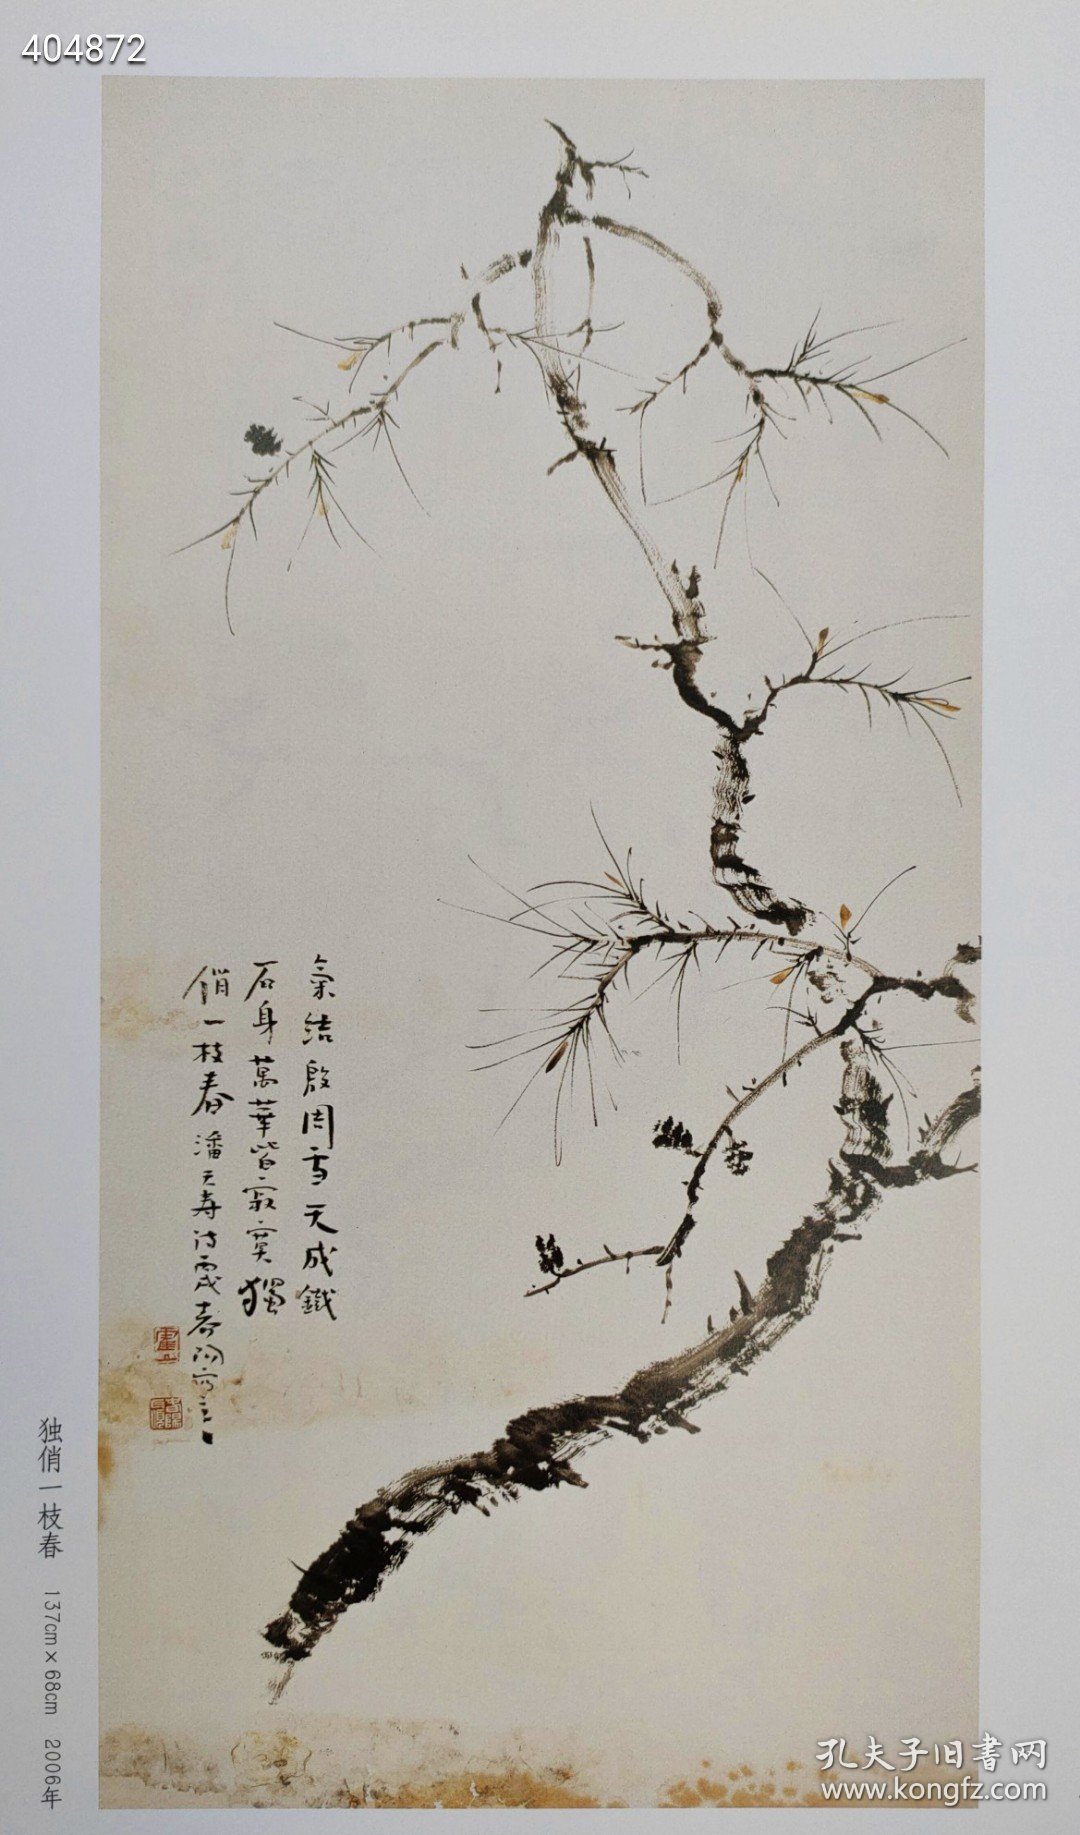 404872
氣结殷周雪天成鐵
石身萬華皆寂寞獨
俏一枝春潘天寿诗
独俏一枝春 137cm×68cm 2006年
孔夫子旧書网
www.kongfz.com